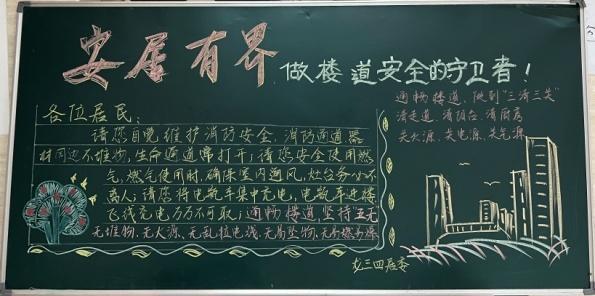 安居有界 做楼道安全的守卫者！
各位居民：
请您自觉维护消防安全，消防通道器
材周边不堆物，生命通道常打开；请您安全使用燃
气，燃气使用时，确保室内通风，灶台务小不
离人；请您将电瓶车集中充电，电瓶车进楼
飞线充电万万不可取；通畅楼道坚持“五无
无堆物、无火源、无乱拉电线、无高坠物、无易燃易爆
通畅楼道，做到“三清三关”
清走道 清阳台 清厨房
关火源、关电源、关气源
龙三四居委